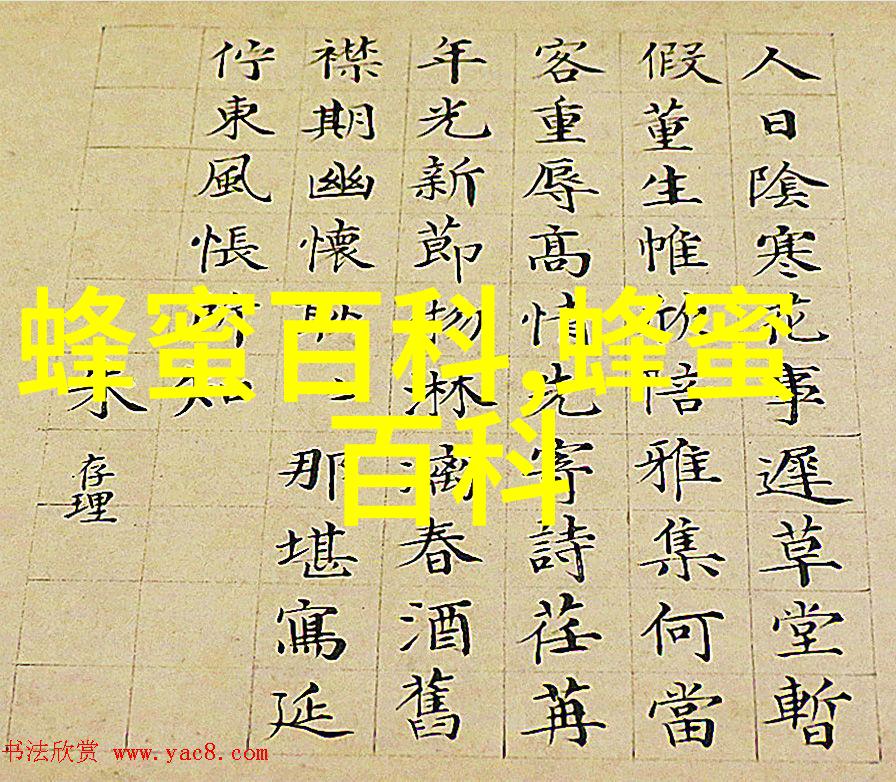 人日陰寒花事遲草堂暫
假董生帷欣陪雅集何當
客重辱高情先寄詩荏苒
年光新節物淋漓春酒舊
襟期幽懷那堪寫延
佇東風悵知
存理
蜂蜜百科,蜂蜜
百科
书法欣赏 www.yac8.com